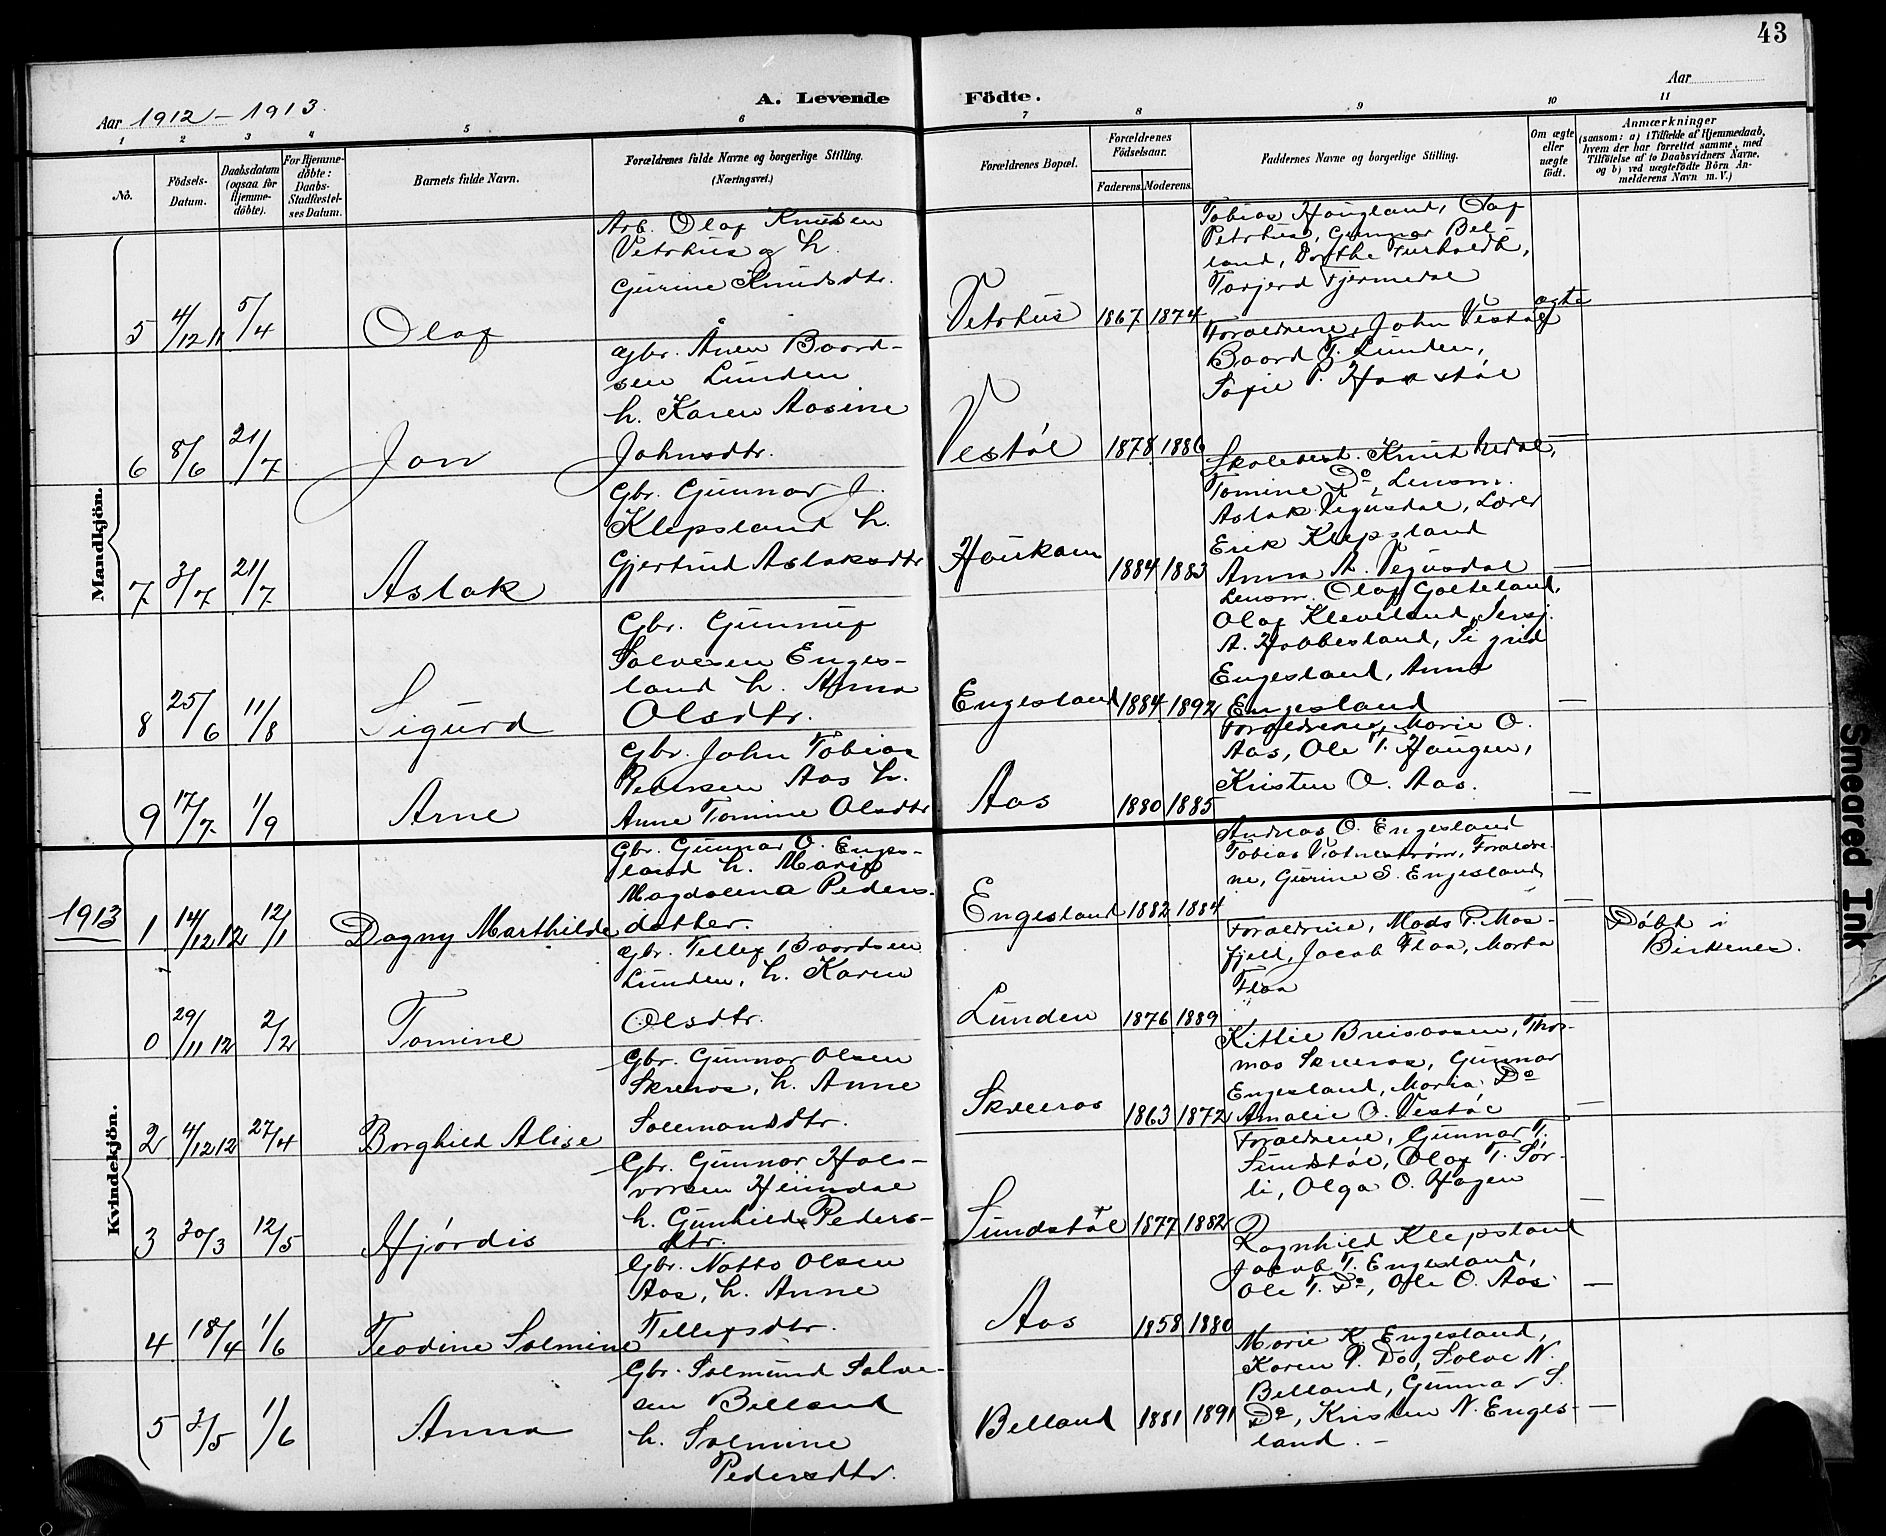 43
Aar 1912 - 1913
A. Levende Födte.
Aar
1 2 3 4 5 6 7 8 9 10 11
No.
Födsels-
Datum.
Daabsdatum
(ogsaa for
Hjemme-
döbte).
For Hjemme-
döbte:
Daabs-
Stadfæstel-
ses Datum.
Barnets fulde Navn.
Forældrenes fulde Navne og borgerlige Stilling.
(Næringsvei.)
Forældrenes Bopæl.
Forældrenes
Födselsaar.
Faderens. Moderens.
Faddernes Navne og borgerlige Stilling.
Om ægte
eller
uægte
födt.
Anmærkninger
(saasom: a) i Tilfælde af Hjemmedaab,
hvem der har forrettet samme, med
Tilföielse af to Daabsvidners Navne,
og b) ved uægtefödte Börn An-
melderens Navn m. V.)
Mandkjön.
5 4/12 11 5/4 Olaf
Arb. Olaf Knutsen
Vetrhus og h.
Gurine Knudsdtr.
Vetrhus 1867 1874
Tobias Haugland, Olaf
Vetrhus, Gunnar Bel-
land,
Torjerd Tjermedal
ægte
6 8/6 21/7 Jon
Gbr. Ånen Baard-
sen Lunden
h. Karen Aasine
Johnsdtr.
Vestøl 1878 1886
Forældrene, John Vestøl
Baard T. Lunden,
Sofie P. Haastøl
—
7 3/7 21/7 Aslak
Gbr. Gunnar J.
Klepsland h.
Gjertrud Aslaksdtr
Haukom 1884 1883
Skolebest. Knut
Tomine Do, Lensm.
Aslak Vegusdal, Lærer
Erik Klepsland
Anna A. Vegusdal
—
8 25/6 11/8 Sigurd
Gbr. Gunnuf
Salvesen Enges-
land h. Anna
Olsdtr.
Engesland 1884 1892
Lensm. Olaf
Olaf Kleveland, Sersj.
A. Hobbesland, Signe
Engesland, Anna
Engesland
—
9 17/7 1/9 Arne
Gbr. John Tobias
Pedersen Aas h.
Anne Tomine Olsdtr
Aas 1880 1885
Forældrene, Marie O.
Aas, Ole T. Haugen,
Kristen O. Aas.
—
1913
Kvindekjön.
1 14/12 12 12/1 Dagny Marthilde
Gbr. Gunnar O. Enges-
land h. Marie
Magdalena Peders-
datter.
Engesland 1882 1884
Andreas O. Engesland
Tobias Vatnestrøm, Forældre-
ne, Gurine S. Engesland
—
0 29/11 12 2/2 Tomine
Gbr. Tellef Baardsen
Lunden, h. Karen
Olsdtr.
Lunden 1876 1889
Forældrene, Mads P. Mos-
fjeld, Jacob Flaa, Marta
Flaa
—
Døbt i
Birkenes.
2 4/12 12 27/4 Borghild Alise
Gbr. Gunnar Olsen
Skreros, h. Anne
Salmonsdtr.
Skreros 1863 1872
Kittil Breisaasen, Tho-
mas Skreros, Gunnar
Engesland, Maria Do
Amalie O. Vestøl
—
3 30/3 12/5 Hjørdis
Gbr. Gunnar Hal-
vorsen Heimdal
h. Gunhild Peders-
dtr.
Sundstøl 1877 1882
Forældrene, Gunnar T.
Sundstøl, Olaf T. Sør-
li, Olga O. Hagen
—
4 18/4 1/6 Teodine Salmine
Gbr. Notto Olsen
Aas, h. Anne
Tellefsdtr.
Aas 1858 1880
Ragnhild Klepsland
Jacob T. Engesland,
Ole T. Do, Ole O. Aas
—
5 3/5 1/6 Anna
Gbr. Salmund Salve-
sen Belland
h. Salmine
Pedersdtr.
Belland 1881 1891
Marie K. Engesland,
Karen P. Do, Salve N.
Belland, Gunnar S.
Do, Kristen N. Enges-
land. —
—
Smeared Ink